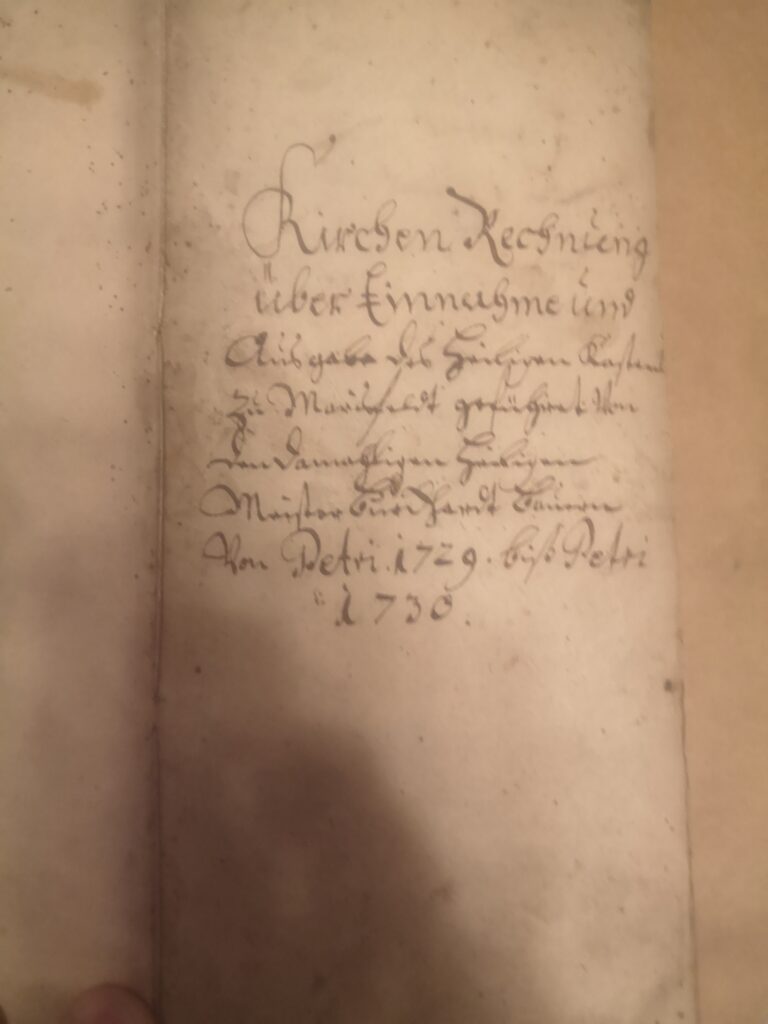 Kirchen Rechnung
über Einnahme und
Ausgabe des Heiligen Kastens
zu geführet Von
den damahligen Heiligen
Meister Burckhardt Bauern
Von Petri 1729. biß Petri
1730.